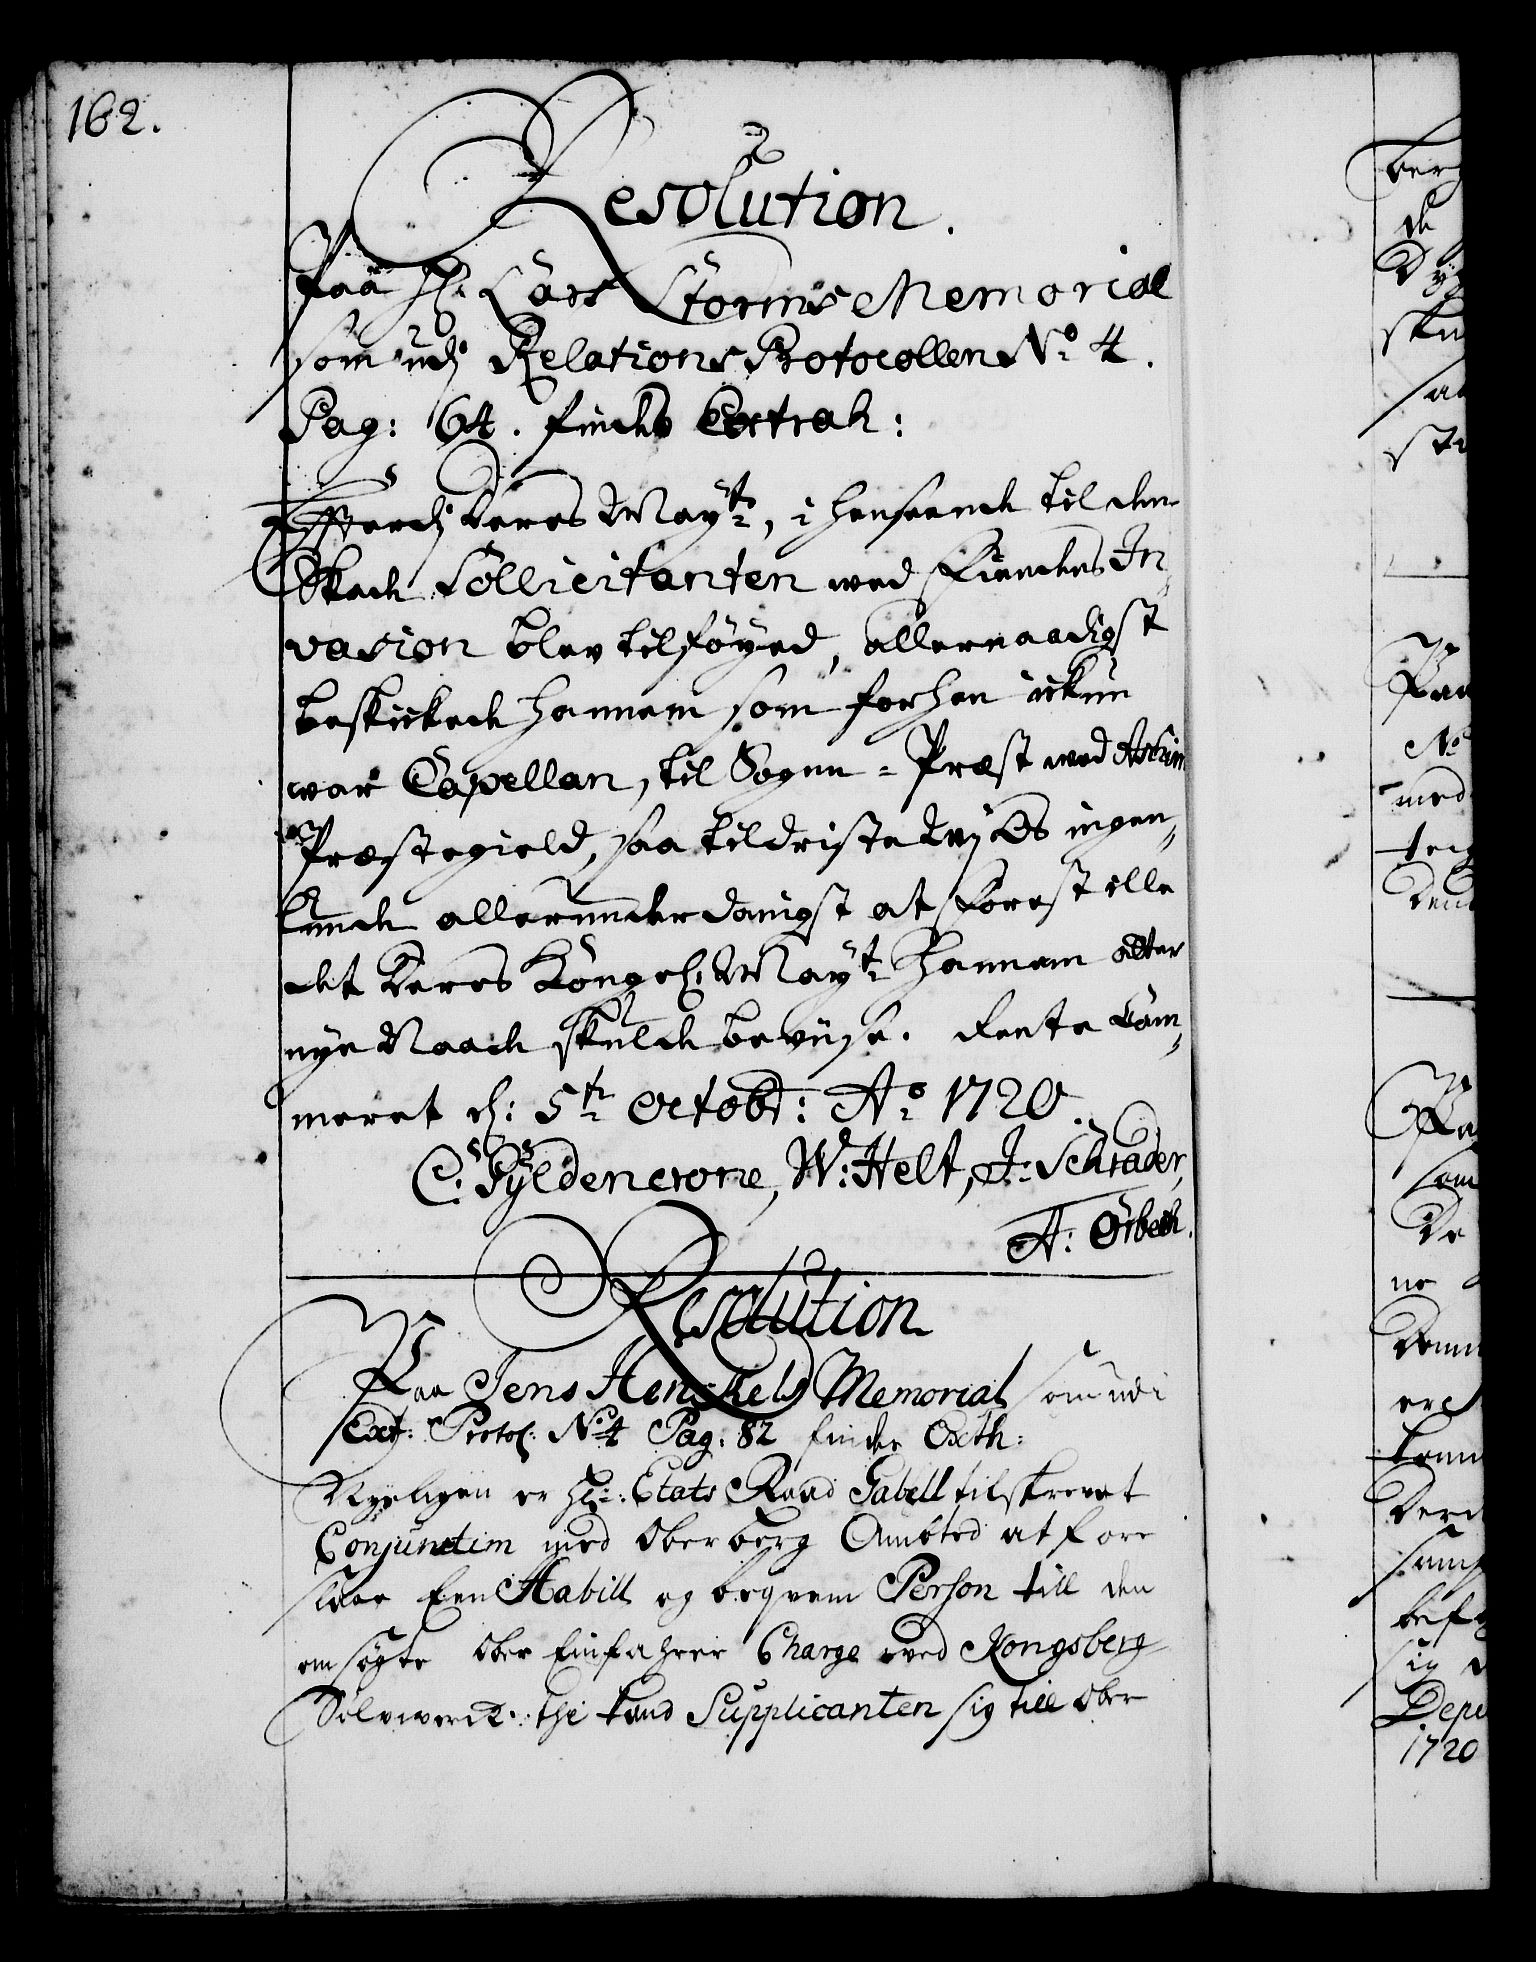 162.
Resolution.
Paa Hr: Lars Storms Memorial
som udj Relations Protocollen No: 4.
Pag: 64. findes Extrah:
Efterdj Deres Mayt:, i henseende til den
Skade Sollicitanten ved Fiendens In,
vasion blev tilføyed, allernaadigst
beskicked hannem som forhen ickun
war Capellan, til Sogne-Præst ved Askim
Præstegield, saa tildriste Wj Os ingen,
lunde allerunderdanigst at forestille
det Deres Kongel: Mayt: hannem atter
nye Naade skulde beviise. Rente Cam,
meret d: 5te: Octobr: Ao: 1720.
C: Gyldencrone, W: Helt, J: Schrader,
A: Örbech.
Resolution
Paa Jens Henckels Memorial som udi
Ext: Protol: No 4 Pag: 82 findes Exth:
Nyeligen er Hr: Etats Raad Gabell tilskrevet
Conjunctim med Oberberg Ambted at fore
slaae Een Habill og beqvem Person till den
omsøgte Ober Einfahrer Charge ved Kongsberg
Sølvwerck: thi kand Supplicanten sig till Ober